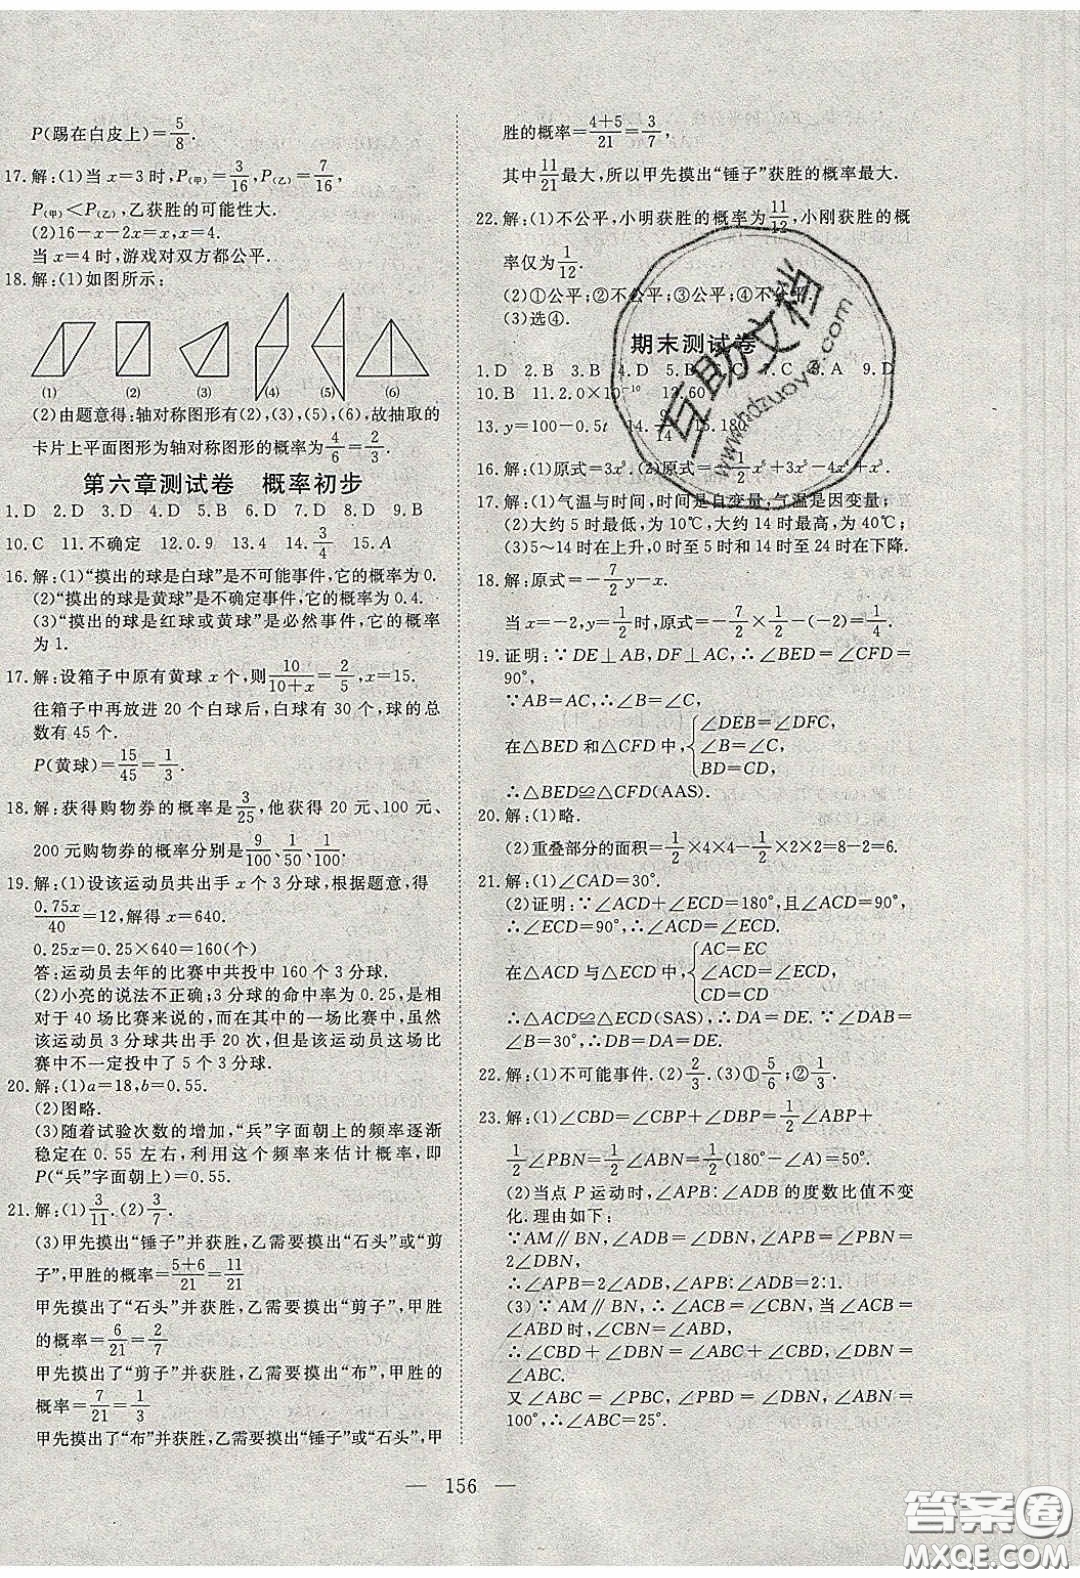 P(踢在白皮上)=5/8.
17.解:(1)当 x=3 时,P(甲)=3/16,P(乙)=7/16,
P(甲)<P(乙),乙获胜的可能性大.
(2)16-x-2x=x,x=4.
当 x=4 时,游戏对双方都公平.
18.解:(1)如图所示:
(1) (2) (3) (4) (5) (6)
(2)由题意得:轴对称图形有(2),(3),(5),(6),故抽取的
卡片上平面图形为轴对称图形的概率为4/6=2/3.
第六章测试卷 概率初步
1.D 2.D 3.D 4.D 5.B 6.D 7.D 8.D 9.B
10.C 11.不确定 12.0.9 13.4 14.3/4 15.A
16.解:(1)“摸出的球是白球”是不可能事件,它的概率为 0.
(2)“摸出的球是黄球”是不确定事件,它的概率为 0.4.
(3)“摸出的球是红球或黄球”是必然事件,它的概率
为 1.
17.解:设箱子中原有黄球 x 个,则10/(10+x)=2/5,x=15.
往箱子中再放进 20 个白球后,白球有 30 个,球的总
数有 45 个.
P(黄球)=15/45=1/3.
18.解:获得购物券的概率是3/25,他获得 20 元、100 元、
200 元购物券的概率分别是9/100、1/50、1/100.
19.解:(1)设该运动员共出手 x 个 3 分球,根据题意,得
0.75x/40=12,解得 x=640.
0.25x=0.25×640=160(个)
答:运动员去年的比赛中共投中 160 个 3 分球.
(2)小亮的说法不正确;3 分球的命中率为 0.25,是相
对于 40 场比赛来说的,而在其中的一场比赛中,虽然
该运动员 3 分球共出手 20 次,但是该运动员这场比
赛中不一定投中了 5 个 3 分球.
20.解:(1)a=18,b=0.55.
(2)图略.
(3)随着试验次数的增加,“兵”字面朝上的频率逐渐
稳定在 0.55 左右,利用这个频率来估计概率,即
P(“兵”字面朝上)=0.55.
21.解:(1)3/11.(2)3/7.
(3)甲先摸出“锤子”并获胜,乙需要摸出“石头”或“剪
子”,甲胜的概率=(5+6)/21=11/21
甲先摸出了“石头”并获胜,乙需要摸出“剪子”,甲胜
的概率=6/21=2/7
甲先摸出了“剪子”并获胜,乙需要摸出“布”,甲胜的
概率=7/21=1/3
甲先摸出了“布”并获胜,乙需要摸出“锤子”或“石头”,甲
胜的概率=(4+5)/21=3/7,
其中11/21最大,所以甲先摸出“锤子”获胜的概率最大.
22.解:(1)不公平,小明获胜的概率为11/12,小刚获胜的概
率仅为1/12.
(2)①公平;②不公平;③公平;④不公平.
(3)选④.
期末测试卷
1.D 2.B 3.B 4.D 5.B 7.C 8.A 9.D
10.B 11.2.0×10⁻¹⁰ 12.60
13.y=100-0.5t 14.9/14 15.180
16.解:(1)原式=3x³.(2)原式=-1/2x⁵+3x⁴-4x³+x².
17.解:(1)气温与时间,时间是自变量,气温是因变量;
(2)大约 5 时最低,为 10℃,大约 14 时最高,为 40℃;
(3)5~14 时在上升,0 时到 5 时和 14 时至 24 时在下降.
18.解:原式=-7/2y-x.
当 x=-2,y=1/2时,原式=-7/2×1/2-(-2)=1/4.
19.证明:∵DE⊥AB,DF⊥AC,∴∠BED=∠CFD=
90°,
∵AB=AC,∴∠B=∠C,
在△BED 和△CFD 中,{∠DEB=∠DFC,
∠B=∠C,
BD=CD,
∴△BED≌△CFD(AAS).
20.解:(1)略.
(2)重叠部分的面积=1/2×4×4-1/2×2×2=8-2=6.
21.解:(1)∠CAD=30°.
(2)证明:∵∠ACD+∠ECD=180°,且∠ACD=90°,
∴∠ECD=90°,∴∠ACD=∠ECD.
在△ACD 与△ECD 中,{AC=EC
∠ACD=∠ECD,
CD=CD
∴△ACD≌△ECD(SAS),∴DA=DE.∵∠DAB=
∠B=30°,∴DB=DA,∴DB=DA=DE.
22.解:(1)不可能事件.(2)2/3.(3)①5/6;②1/3.
23.解:(1)∠CBD=∠CBP+∠DBP=1/2∠ABP+
1/2∠PBN=1/2∠ABN=1/2(180°-∠A)=50°.
(2)当点 P 运动时,∠APB 与∠ADB 的度数比值不变
化.理由如下:
∵AM∥BN,∠ADB=∠DBN,∠APB=∠PBN=
2∠DBN,
∴∠APB=2∠ADB,∠APB:∠ADB=2:1.
(3)∵AM∥BN,∴∠ACB=∠CBN,当∠ACB=
∠ABD 时,∠CBN=∠ABD,
∴∠CBD+∠DBN=∠ABC+∠CBD,∴∠DBN=
∠ABC.
又∠ABC=∠PBC,∠PBD=∠DBN,∠ABN=
100°,∴∠ABC=25°.
互助文档
www.hdzuoye.com
— 156 —
答案圈
MXQE.COM